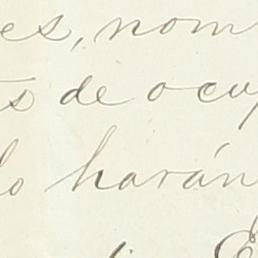 es, nom
s de ocup
lo harán
E